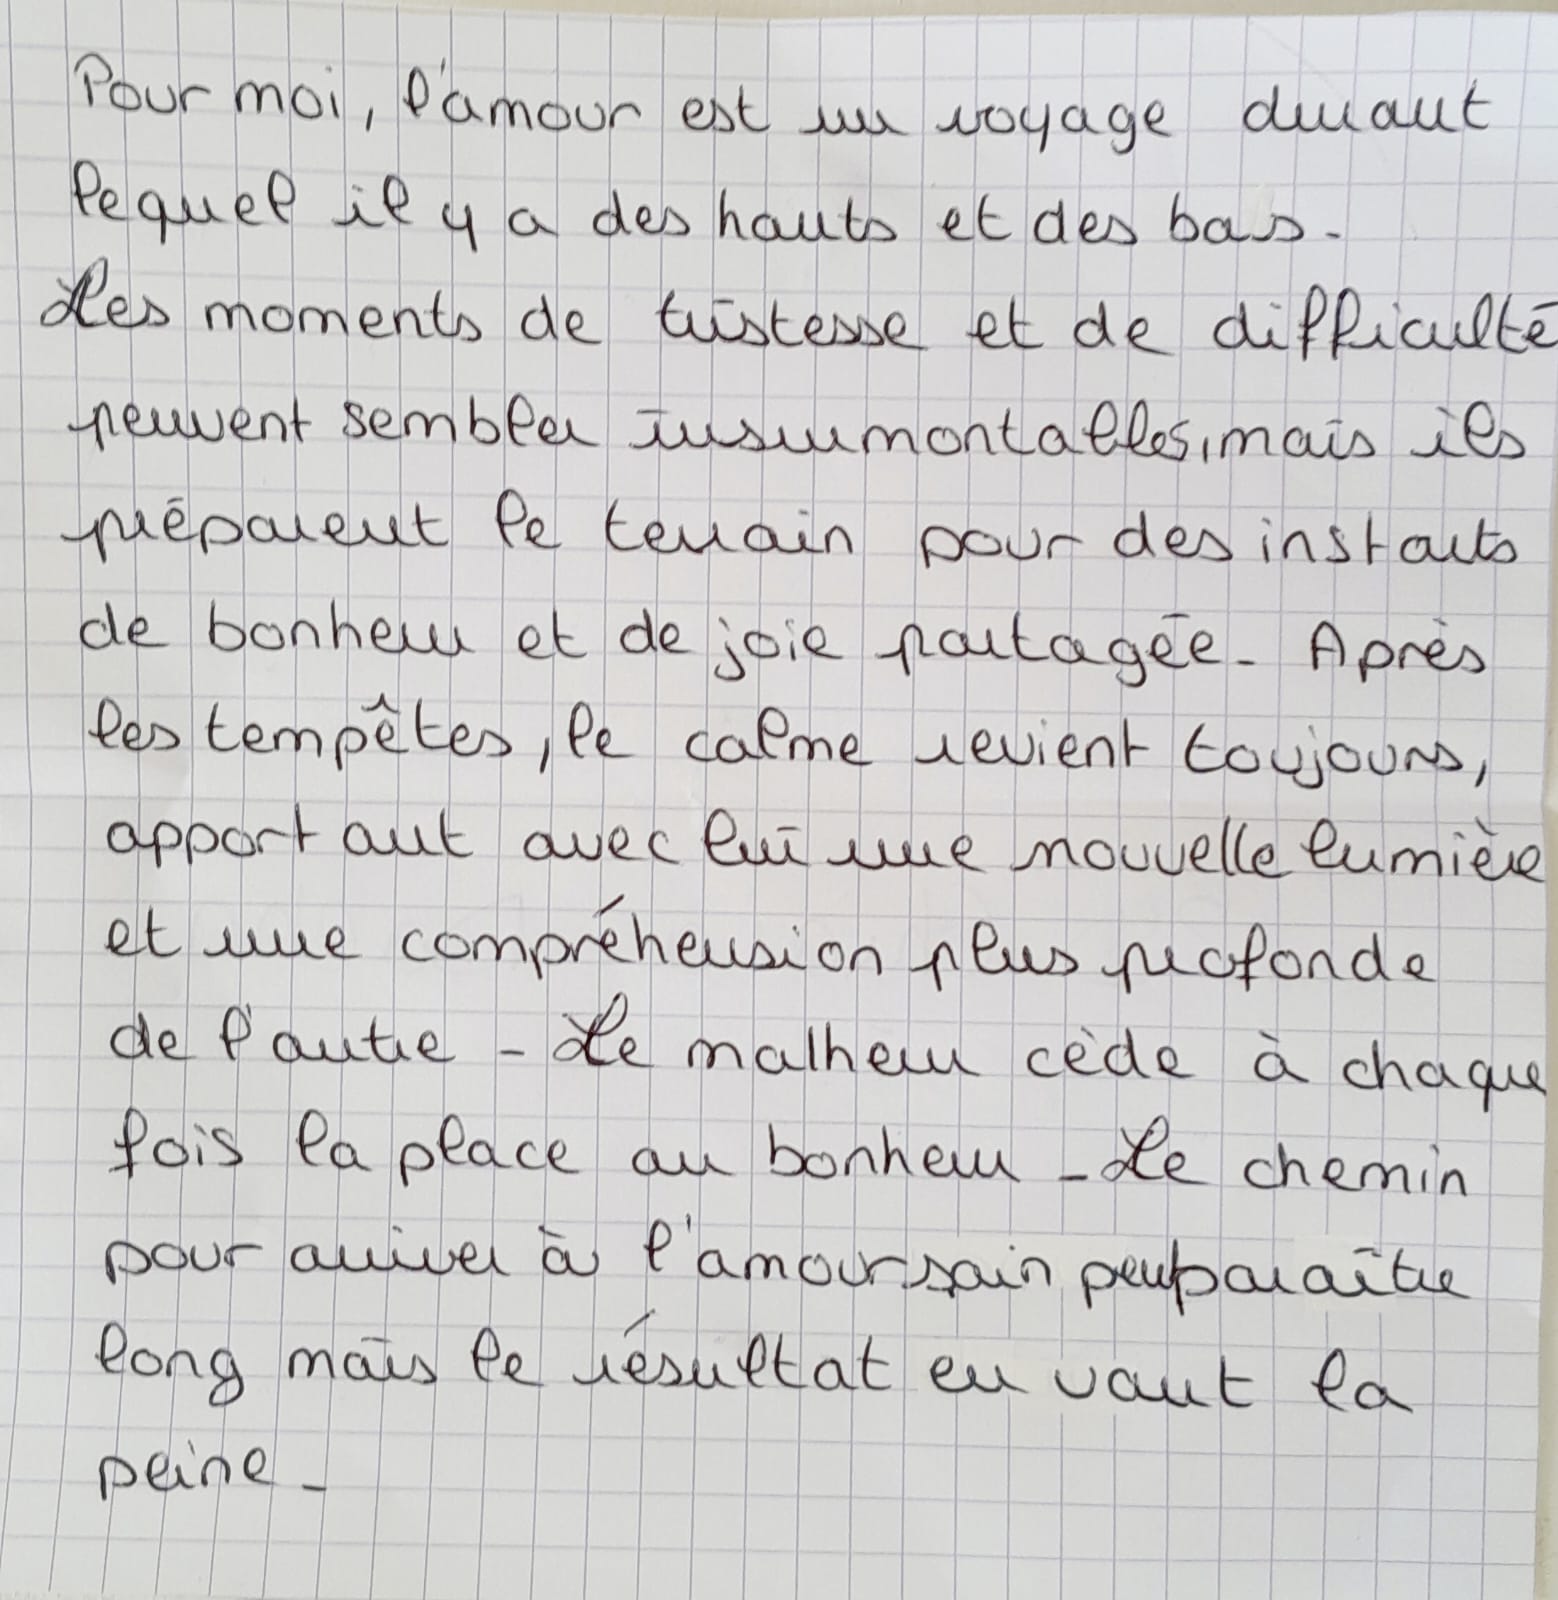 Pour moi, l'amour est un voyage durant
lequel il y a des hauts et des bas.
Les moments de tristesse et de difficulté
peuvent sembler insurmontables, mais ils
préparent le terrain pour des instants
de bonheur et de joie partagée. Après
les tempêtes, le calme revient toujours,
apportant avec lui une nouvelle lumière
et une compréhension plus profonde
de l'autre. Le malheur cède à chaque
fois la place au bonheur. Le chemin
pour arriver à l'amour sain peut paraître
long mais le résultat en vaut la
peine.